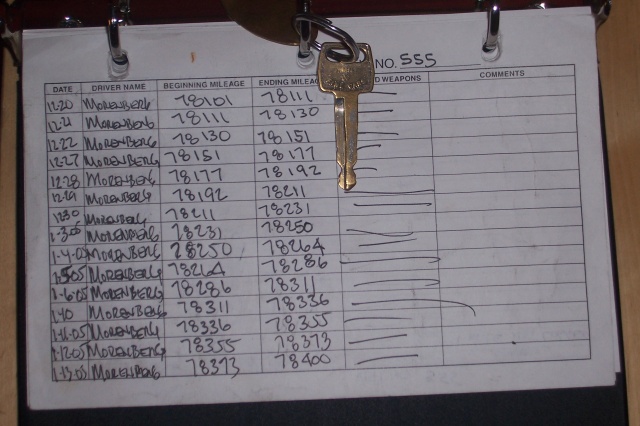 NO. 555
DATE DRIVER NAME BEGINNING MILEAGE ENDING MILEAG D WEAPONS COMMENTS
12-20 MORENBERG 78101 78111
12-21 MORENBERG 78111 78130
12-22 MORENBERG 78130 78151
12-27 MORENBERG 78151 78177
12-28 MORENBERG 78177 78192
12-29 MORENBERG 78192 78211
12-30 MORENBERG 78211 78231
1-3-05 MORENBERG 78231 78250
1-4-05 MORENBERG 78250 78264
1-5-05 MORENBERG 78264 78286
1-6-05 MORENBERG 78286 78311
1-10 MORENBERG 78311 78336
1-11-05 MORENBERG 78336 78355
1-12-05 MORENBERG 78355 78373
1-13-05 MORENBERG 78373 78400